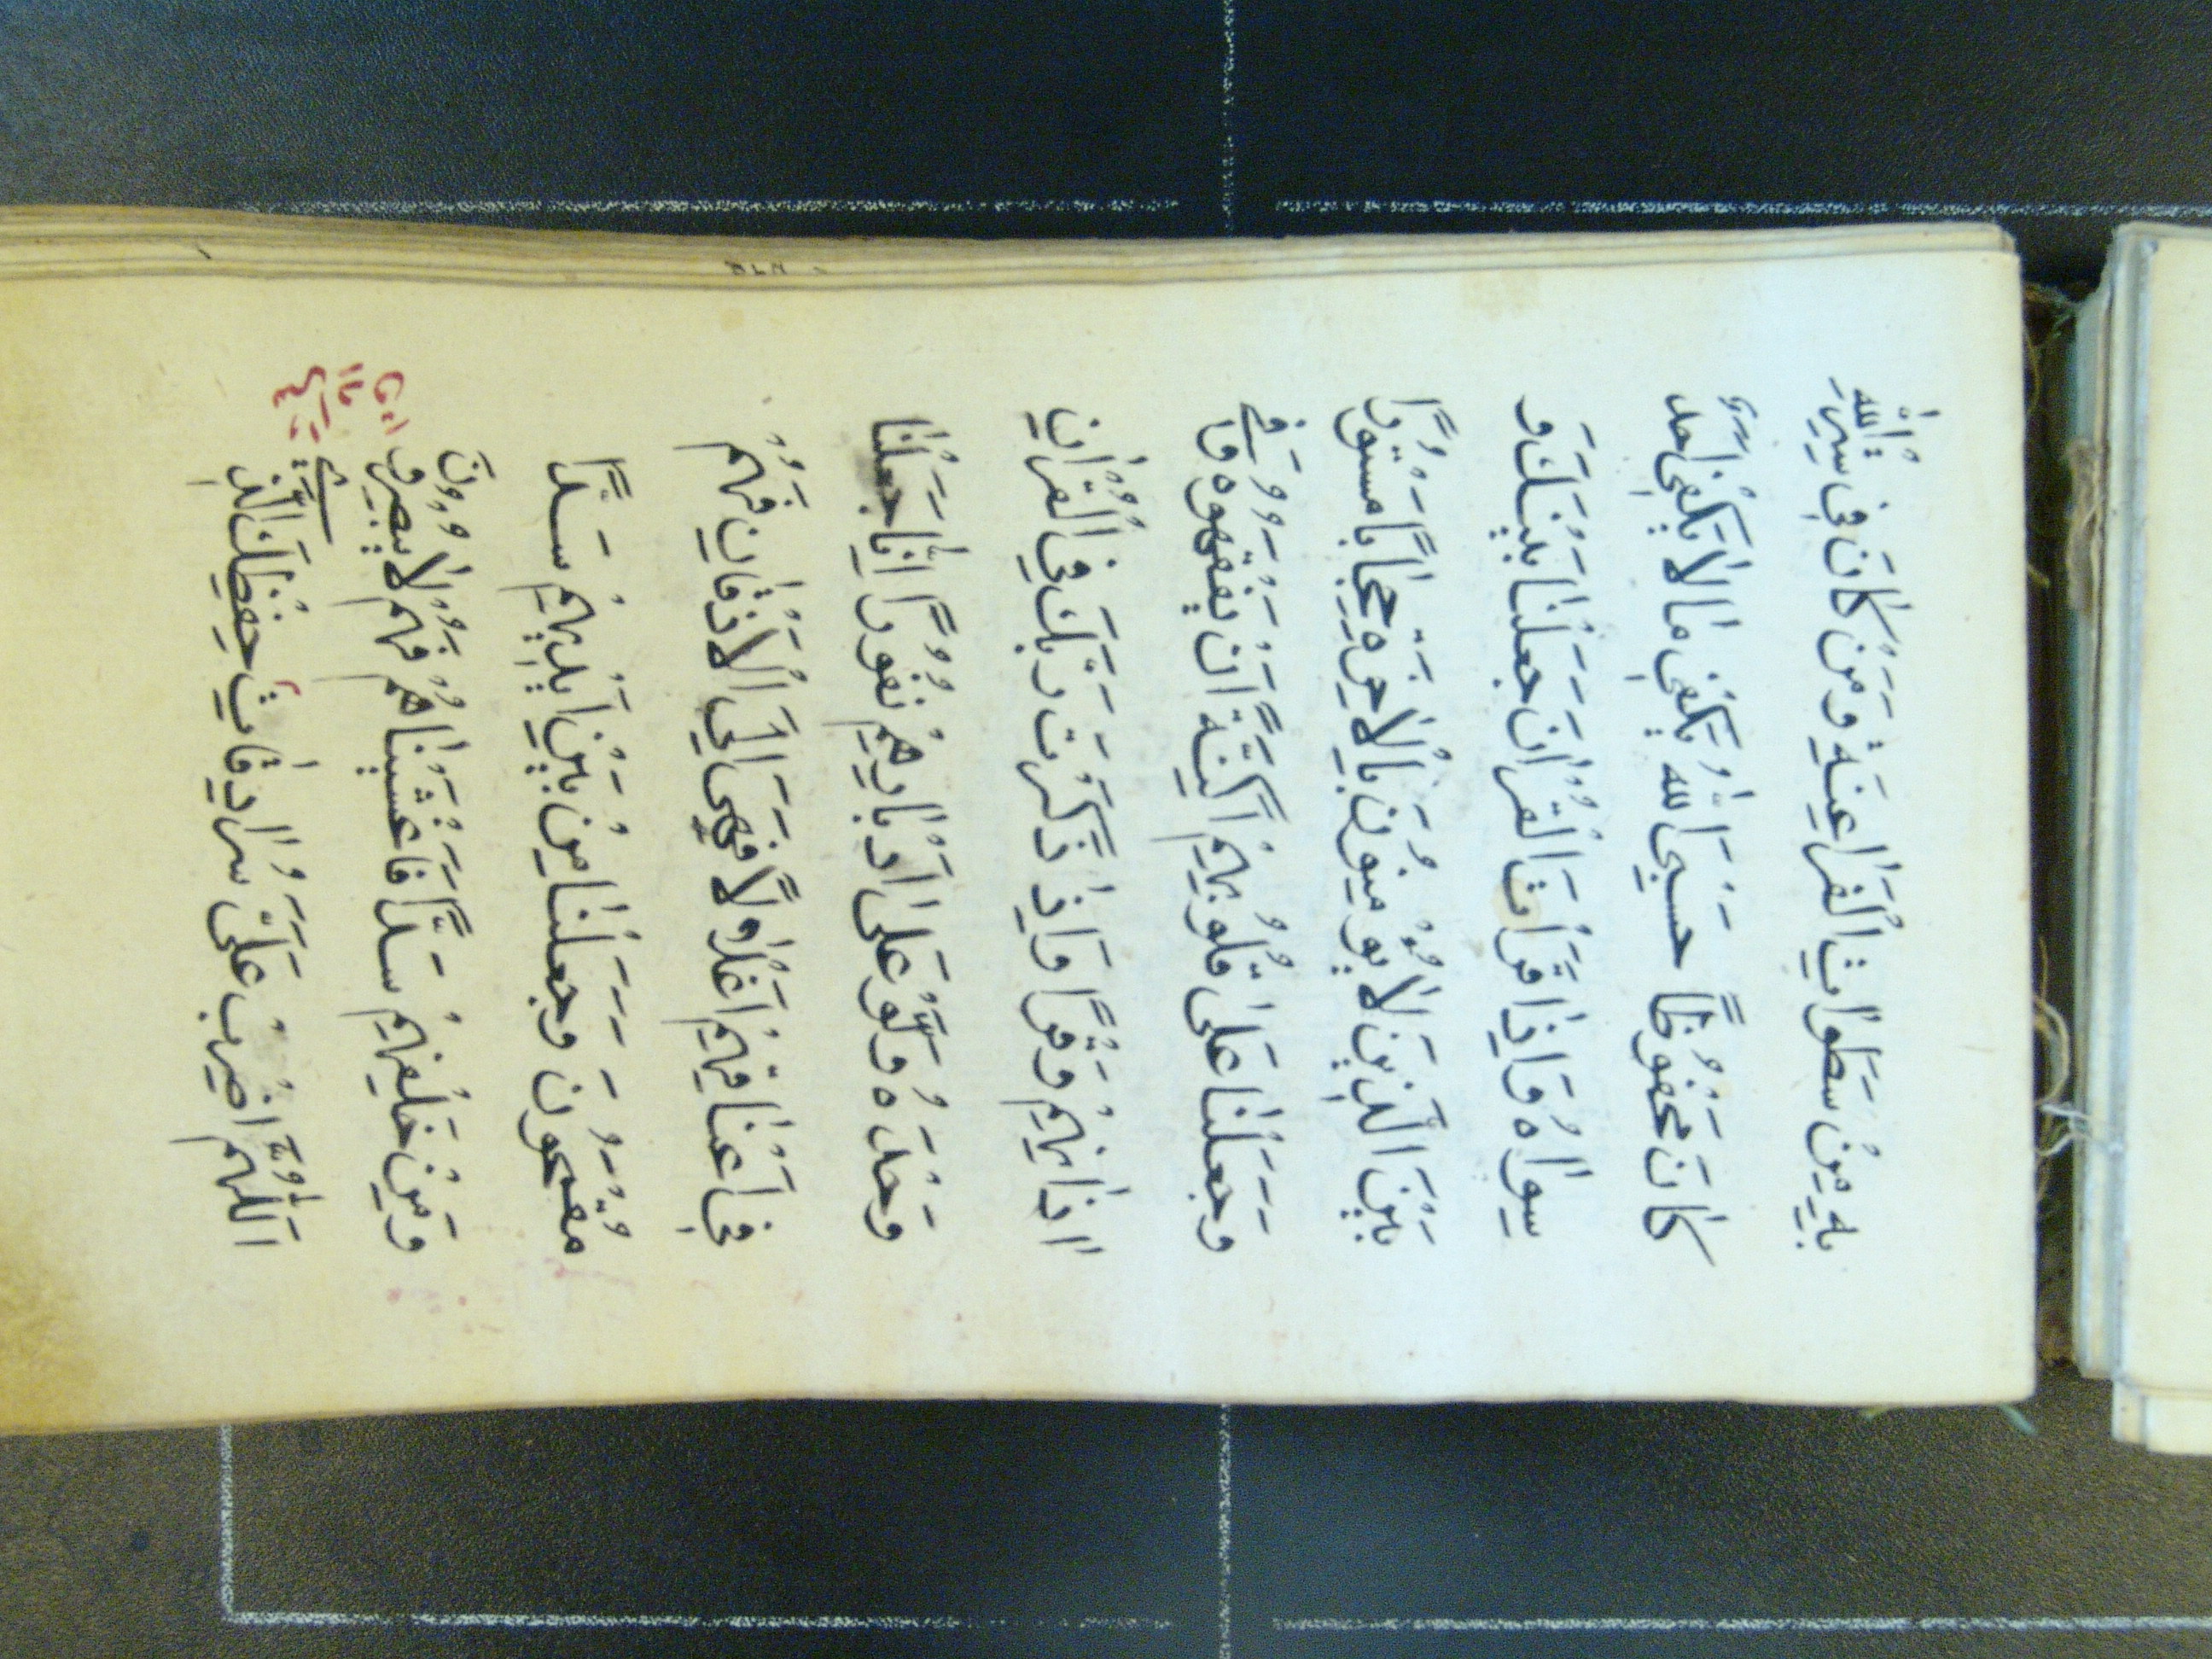 بِهِ مِنْ سَطَوَاتِ الْفَرَاعِنَةِ وَمَنْ كَانَ فِى سِتْرِ اللّٰهِ
كَانَ مَحْفُوْظًا حَسْبِىَ اللّٰهُ يَكْفِى مَا لَا يَكْفِى اَحَدٌ
سِوَاهُ وَاِذَا قَرَأْتَ الْقُرْاٰنَ جَعَلْنَا بَيْنَكَ وَ
بَيْنَ الَّذِيْنَ لَا يُؤْمِنُوْنَ بِالْاٰخِرَةِ حِجَابًا مَسْتُوْرًا
وَجَعَلْنَا عَلٰى قُلُوْبِهِمْ اَكِنَّةً اَنْ يَفْقَهُوْهُ وَفِى
اٰذَانِهِمْ وَقْرًا وَاِذَا ذَكَرْتَ رَبَّكَ فِى الْقُرْاٰنِ
وَحْدَهُ وَلَّوْ عَلٰى اَدْبَارِهِمْ نُفُوْرًا اِنَّا جَعَلْنَا
فِى اَعْنَاقِهِمْ اَغْلَالًا فَهِىَ اِلَى الْاَذْقَانِ فَهُمْ
مُقْمَحُوْنَ وَجَعَلْنَا مِنْ بَيْنِ اَيْدِيْهِمْ سَدًّا
وَمِنْ خَلْفِهِمْ سَدًّا فَاَغْشَيْنَاهُمْ فَهُمْ لَا يُبْصِرُوْنَ
اَللّٰهُمَّ اضْرِبْ عَلَىَّ سُرَادِقَاتِ حِفْظِكَ الَّذِى